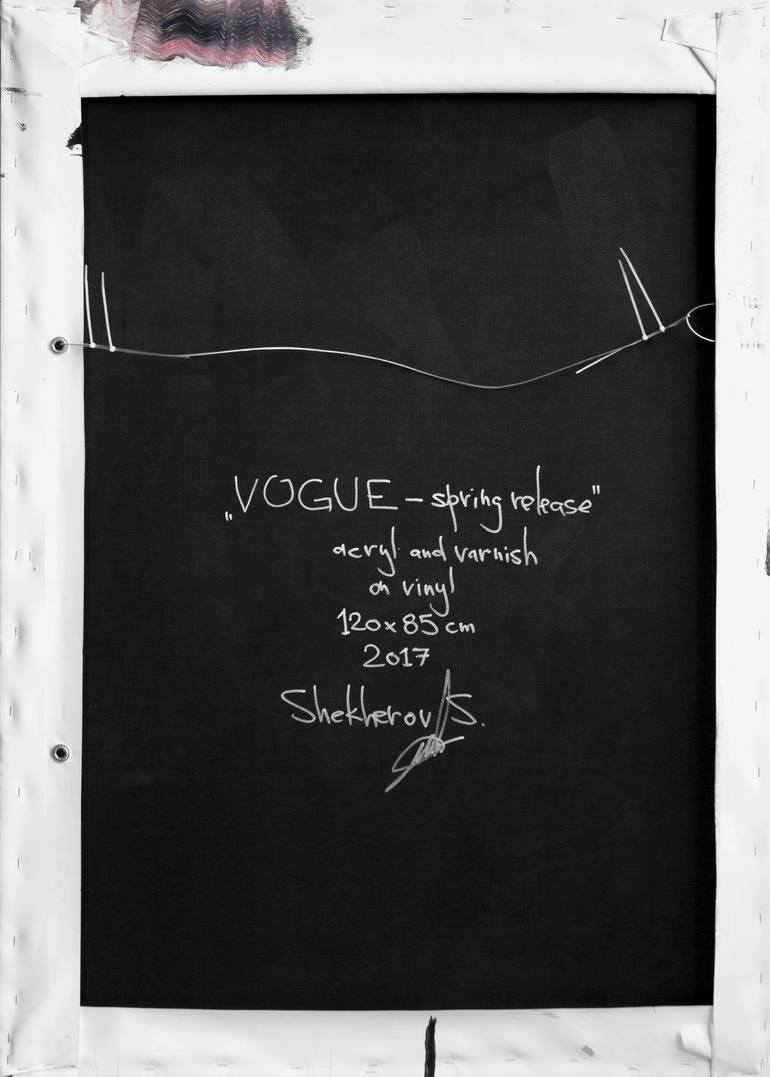 „VOGUE – spring release"
acryl and varnish
on vinyl
120x85 cm
2017
Shekherov S.